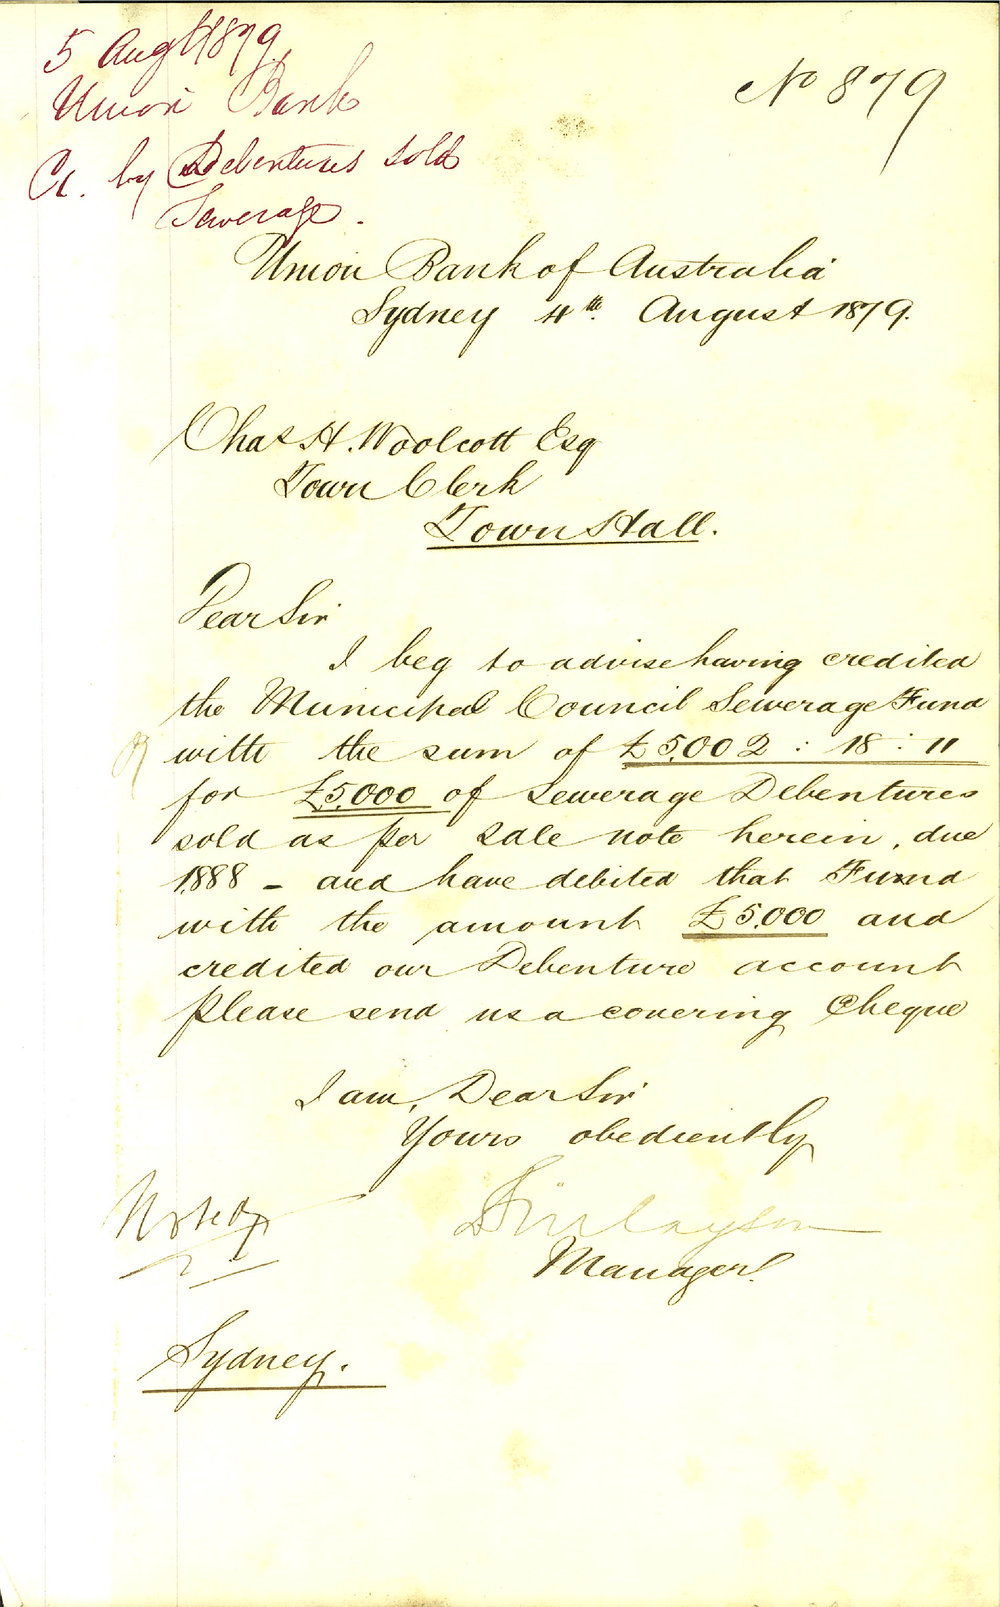 5 Augt 1879
Union Bank
Cr. by Debentures sold
Sewerage.
No 879
Union Bank of Australia
Sydney 4th. August 1879.
Chas H. Woolcott Esq
Town Clerk
Town Hall.
Dear Sir
I beg to advise having credited
the Municipal Council Sewerage Fund
with the sum of £5,002 : 18 : 11
for £5,000 of Sewerage Debentures
sold as per sale note herein, due
1888 - and have debited that Fund
with the amount £5,000 and
credited our Debenture account
Please send us a covering Cheque
I am, Dear Sir
Yours obediently
Finlayson
Manager
Noted
Sydney.